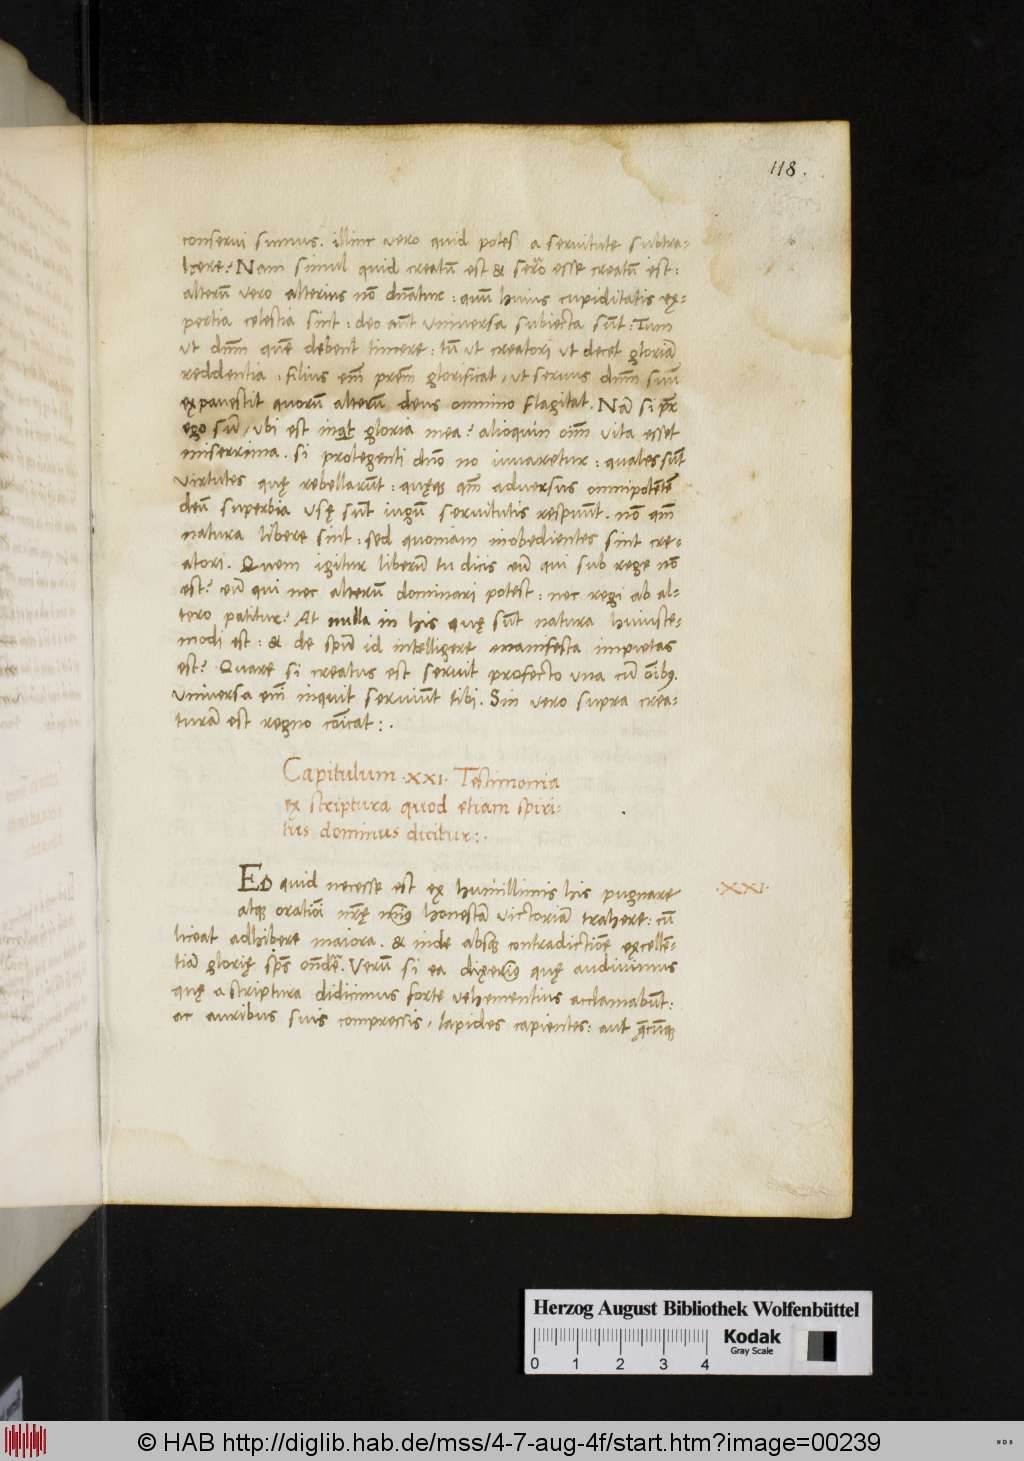 118.
conserui sumus. illinc vero quid potes a seruitute subtra-
here? Nam simul quid creatū est & seruō esse creatū est:
alterū vero alterius nō dn̄atur: quū huius cupiditatis ex-
pertia celestia sint: deo aūt vniuersa subiecta sūt: Tum
vt dn̄m quē debent timere: tū vt creatori vt decet gloriā
reddentia: filius em̄ prēm glorificat, vt seruus dn̄m suū
expauescit quorū alterū deus omnino flagitat. Nā si pr̄
ego sū, vbi est inqͥt gloria mea? alioquin oīm vita esset
miserrima. si protegenti dn̄o no iuuaretur: quales sūt
virtutes quę rebellarūt: quęqꝫ qm̄ aduersus omnipotētē
deū superbia vsę sūt iugū seruitutis respuūt. nō qm̄
natura libere sint: sed quoniam inobedientes sint cre-
atori. Quem igitur liberū tu dicis eū qui sub rege nō
est? eū qui nec alterū dominari potest: nec regi ab al-
tero patitur? At nulla in his quę sūt natura huiusce-
modi est: & de spū id intelligere manifesta impietas
est? Quare si creatus est seruit profecto vna cū oībꝫ.
Vniuersa em̄ inquit seruiūt tibi. Sin vero supra crea-
turā est regno cōicat:.
Capitulum .XXI. Testimonia
ex scriptura quod etiam spiri-
tus dominus dicitur:.
.XXI.
Et quid necesse est ex humillimis his pugnare
atqꝫ orationi nr̄ę honestā victoriā trahere: cū
liceat adhibere maiora. & inde absqꝫ contradictiōe excellē-
tiā glorię spūs ondēre. Verū si ea dixerimꝰ quę audiuimus
quę a scriptura didicimus forte vehementius acclamabūt:
ac auribus suis compressis, lapides capientes: aut qͣecūqꝫ
Herzog August Bibliothek Wolfenbüttel
0 1 2 3 4
Kodak
Gray Scale
© HAB http://diglib.hab.de/mss/4-7-aug-4f/start.htm?image=00239